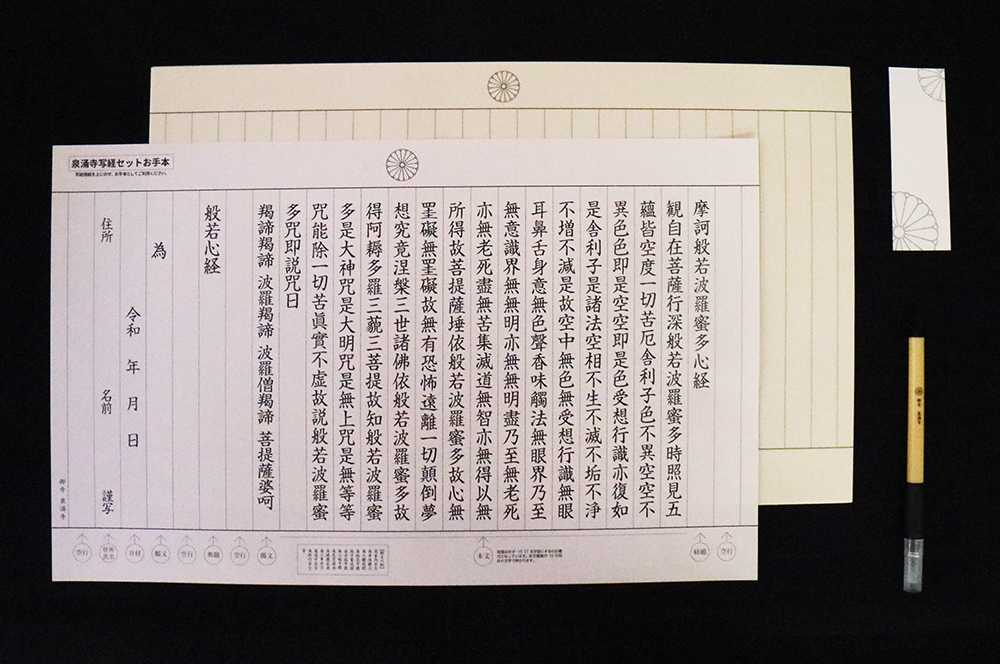 泉涌寺写経セットお手本
写経用紙を上にのせ、お手本としてご利用ください。
摩訶般若波羅蜜多心経
観自在菩薩行深般若波羅蜜多時照見五
蘊皆空度一切苦厄舎利子色不異空空不
異色色即是空空即是色受想行識亦復如
是舎利子是諸法空相不生不滅不垢不淨
不増不減是故空中無色無受想行識無眼
耳鼻舌身意無色聲香味觸法無眼界乃至
無意識界無無明亦無無明盡乃至無老死
亦無老死盡無苦集滅道無智亦無得以無
所得故菩提薩埵依般若波羅蜜多故心無
罣礙無罣礙故無有恐怖遠離一切顛倒夢
想究竟涅槃三世諸佛依般若波羅蜜多故
得阿耨多羅三藐三菩提故知般若波羅蜜
多是大神咒是大明咒是無上咒是無等等
咒能除一切苦眞實不虚故説般若波羅蜜
多咒即説咒曰
羯諦羯諦 波羅羯諦 波羅僧羯諦 菩提薩婆呵
般若心経
為
令和 年 月 日
住所 名前 謹写
御寺 泉涌寺
空行
経題
本文
空行
奥題
空行
願文
日付
空行
御寺 泉涌寺